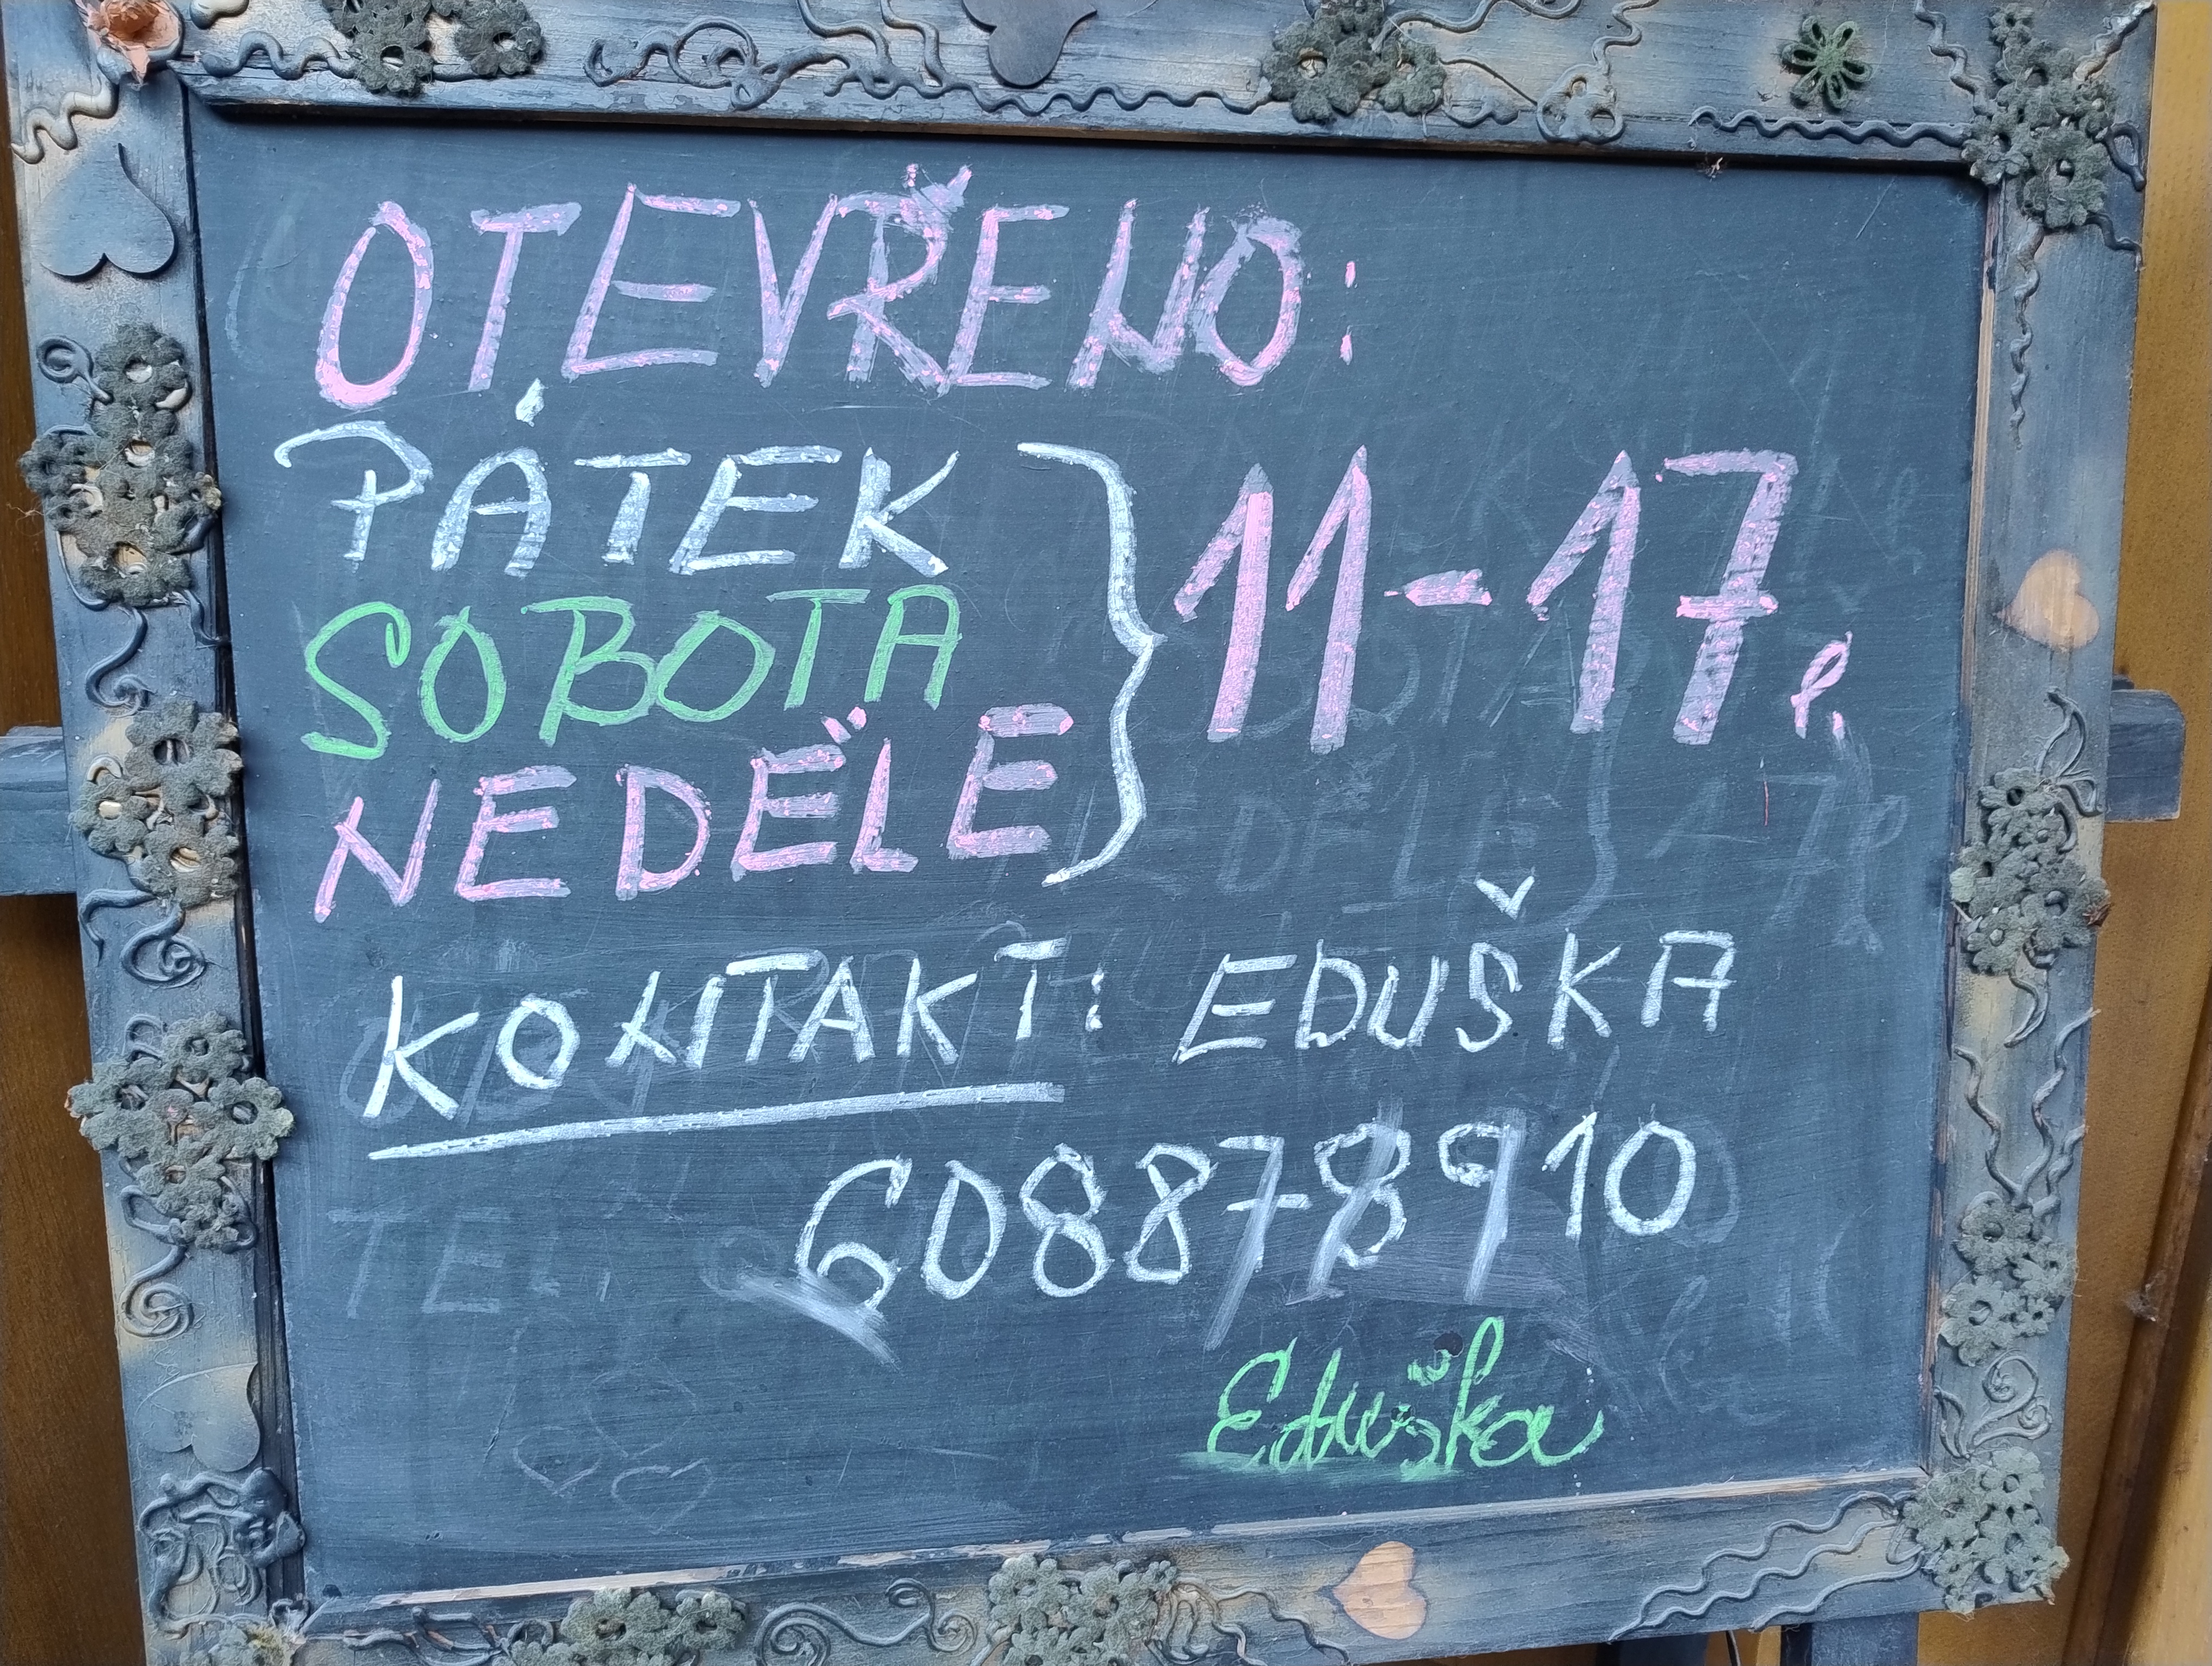 OTEVŘENO:
PÁTEK
SOBOTA
NEDĚLE
} 11-17,
KONTAKT: EDUŠKA
608878910
Eduška
TEL.